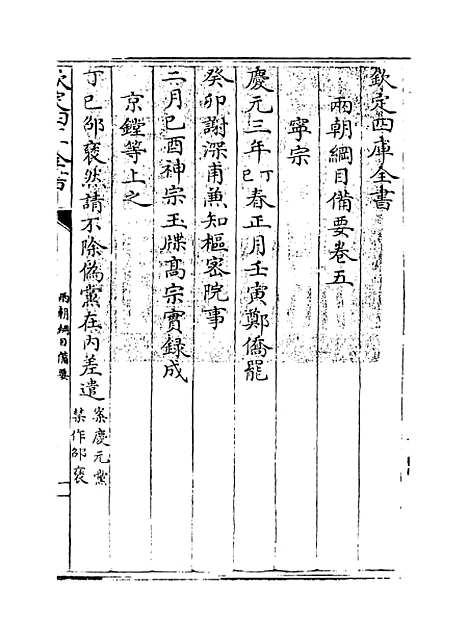 欽定四庫全書
兩朝綱目備要卷五
寧宗
慶元三年丁巳春正月壬寅鄭僑罷
癸卯謝深甫兼知樞密院事
二月己酉神宗玉牒髙宗實録成
京鏜等上之
丁巳邵褒然請不除偽黨在内差遣案慶元黨
禁作邵褒
欽定四庫全書
兩朝綱目備要
一